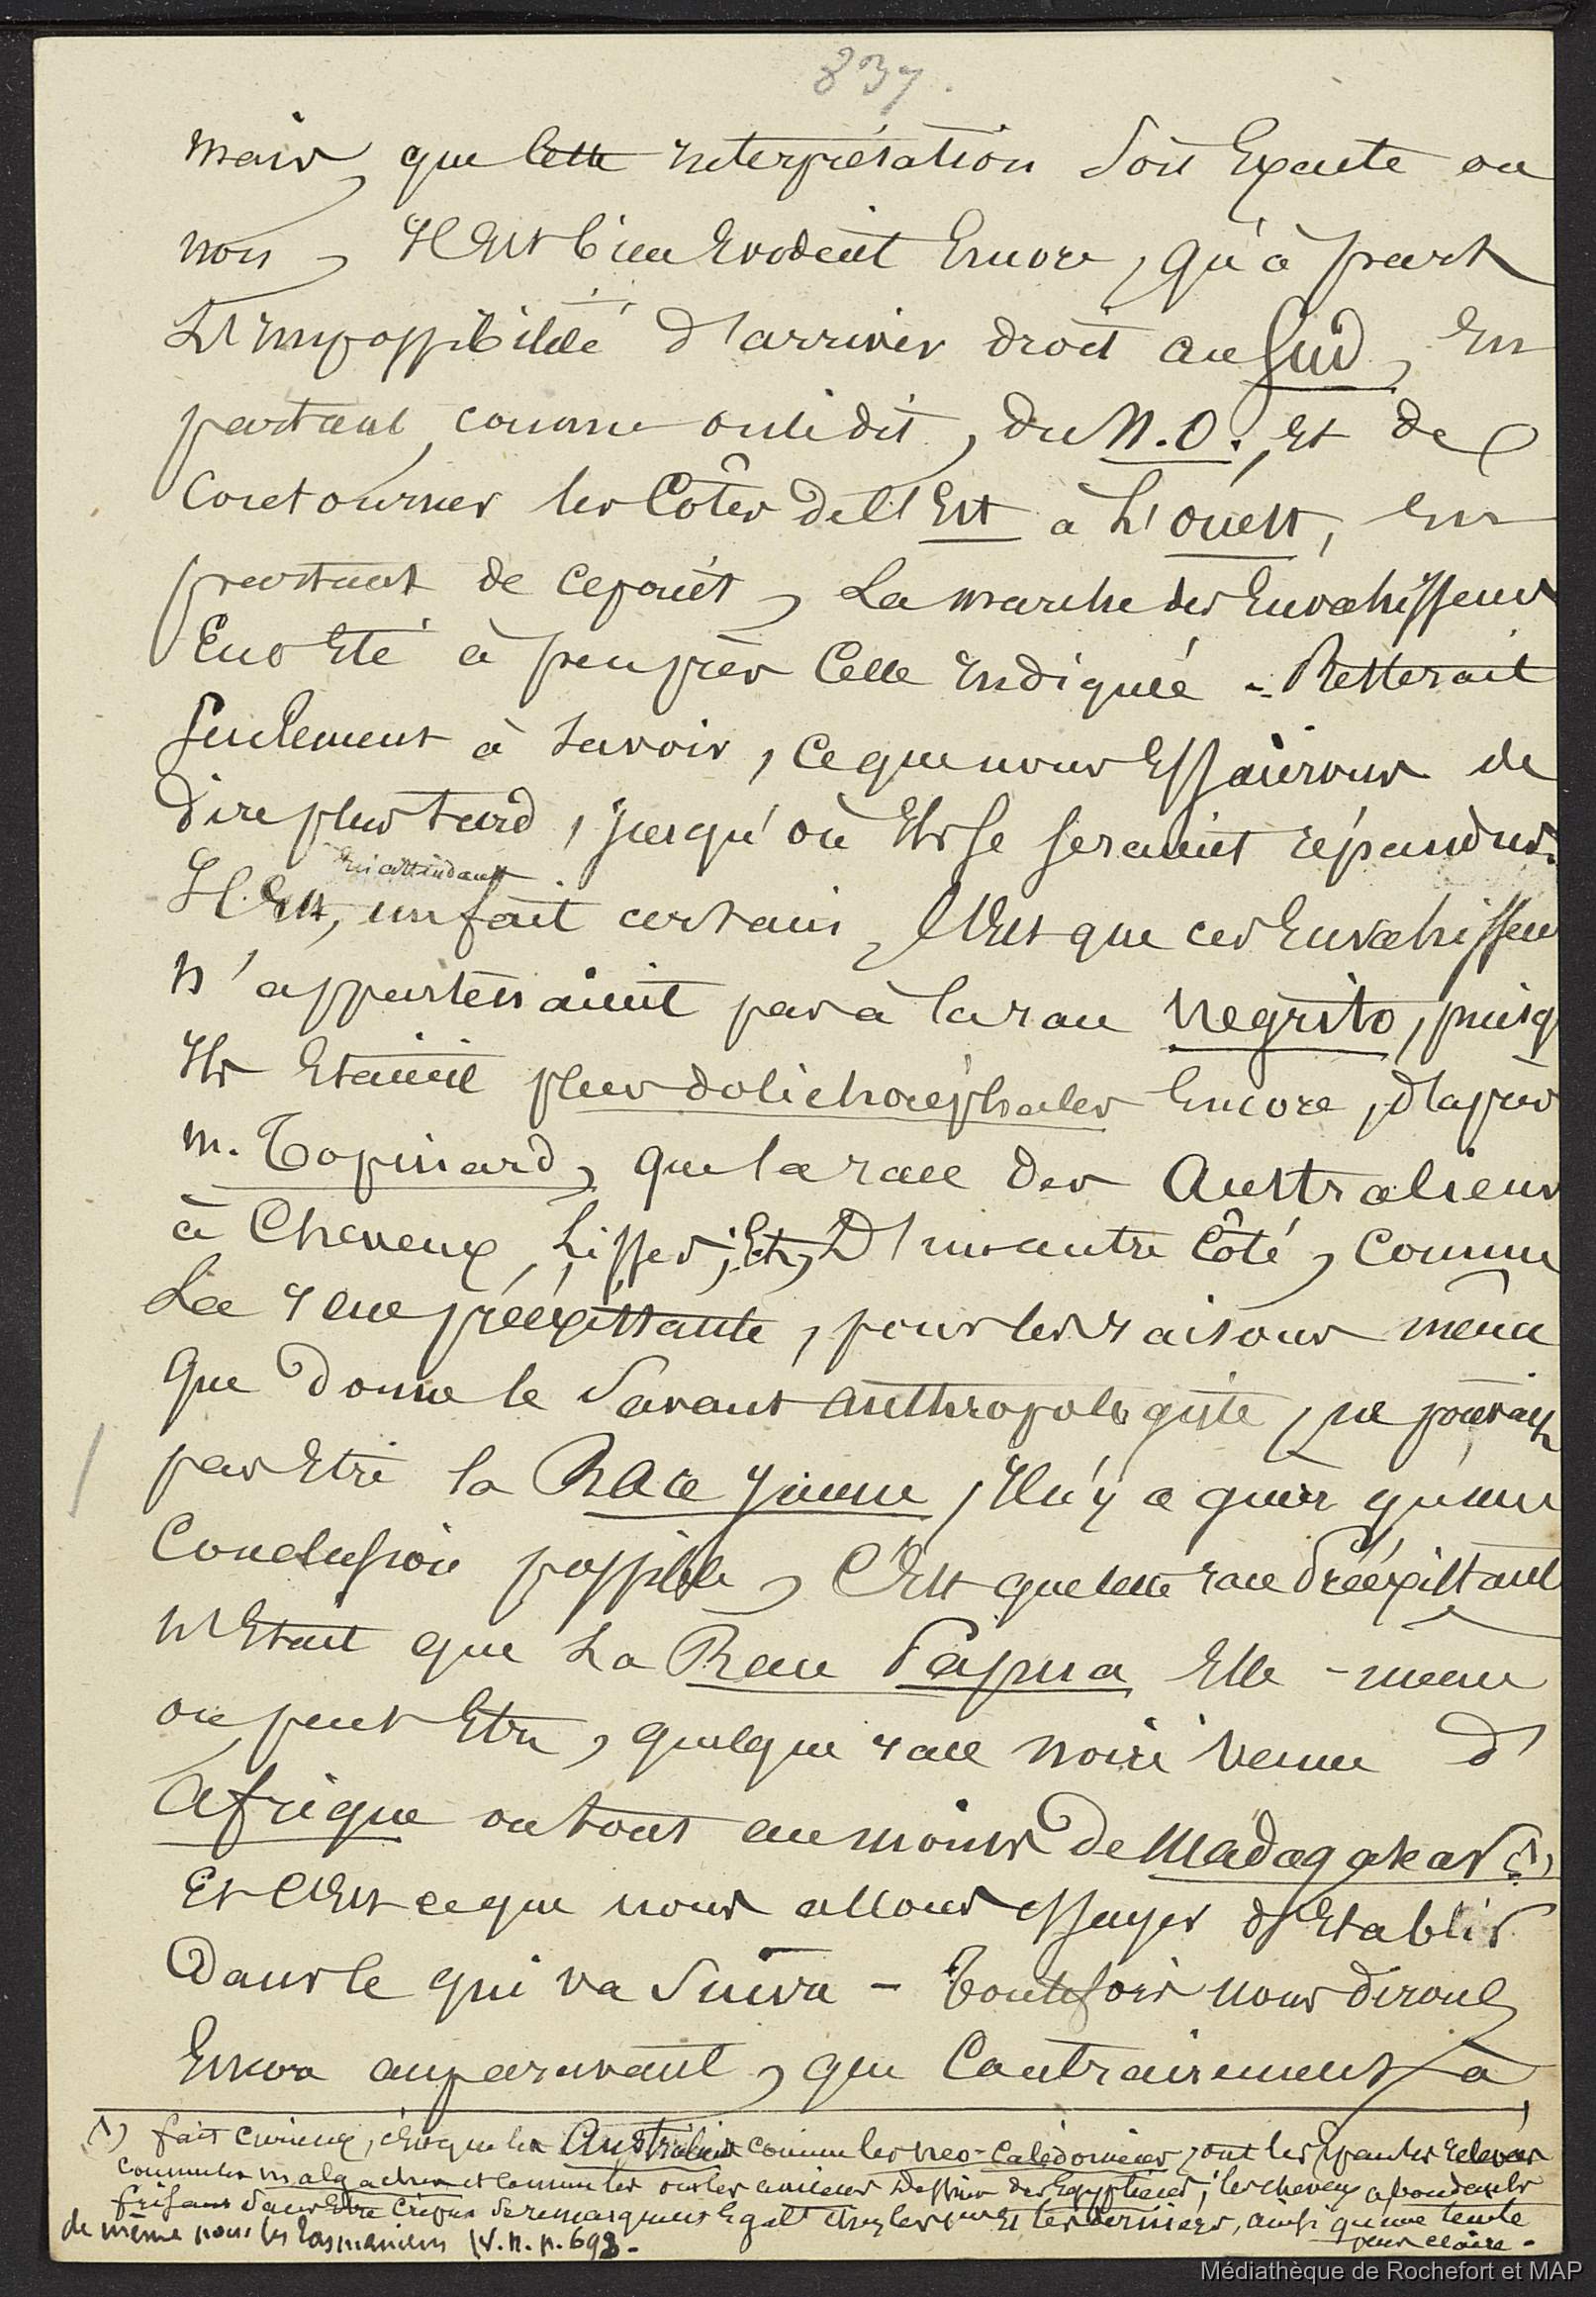 837.
mais, que cette interprétation soit Exacte ou
non, Il Est bien Evident Encore, qu'à part
L'Impossibilité d'arriver droit au Sud, En
partant, comme on le dit, du N.O., et de
contourner les Côtes de l'Est à L'ouest, En
partant de ce point, La marche des Envahisseurs
Eut Eté à peu près Celle Indiquée - Resterait
seulement à savoir, ce que nous Essaierons de
dire plus tard, jusqu'où Ils se seraient répandus.
En attendant
Il Est, un fait certain, C'Est que ces Envahisseu
n'appartenaient pas à la race Negrito, puisq
Ils Etaient plus dolichocéphales Encore, d'après
m. Topinard, que la race des Australiens
à Cheveux Lisses; Et, D'un autre Côté, Comme
La race préexistante, pour les raisons même
Que donne le Savant anthropologiste, ne pouvait
pas Etre la Race Jaune, Il n'y a guère qu'une
Conclusion possible, C'Est que cette race Préexistant
n'Etait que La Race Papua Elle-même
ou peut Etre, quelque race noire venue d'
Afrique ou tout au moins de Madagaskar (1)
Et C'Est ce que nous allons essayer d'Etablir
Dans le qui va Suivre - Toutefois nous dirons
Encore auparavant, que Contrairement à
(1) fait curieux, c'est que les Australiens comme les neo-Calédoniens, ont les Epaules relevées
comme les malgaches et comme les ont les anciens Dessins des Egyptiens; les cheveux abondants
frisant sans Etre Crépus se remarquent Egalt chez les uns Et les derniers, ainsi qu'une teinte
peau claire.
de même pour les Tasmaniens (V. n. p. 698.-
Médiathèque de Rochefort et MAP